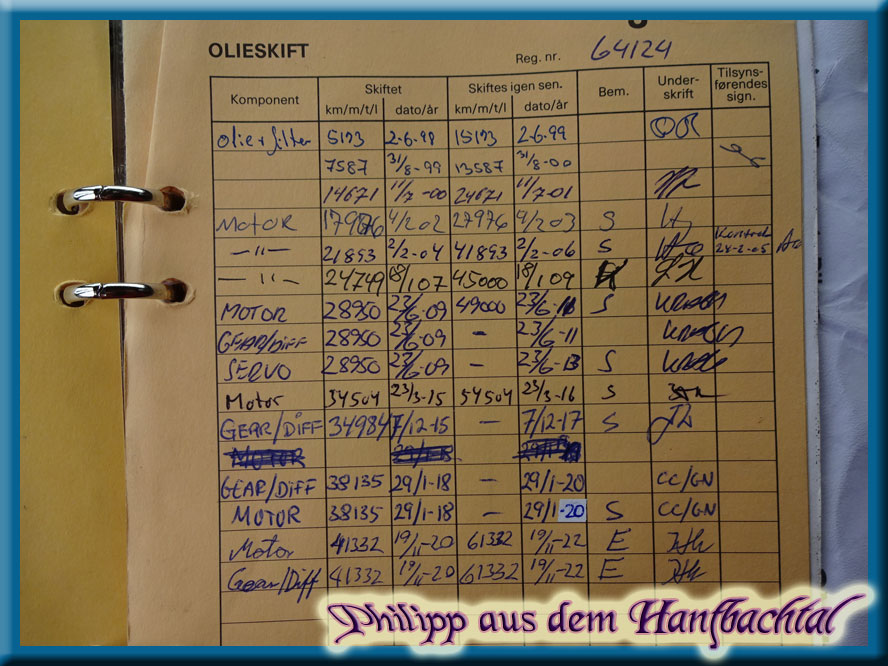 OLIESKIFT
Reg. nr. 64124
Komponent Skiftet Skiftes igen sen. Bem. Under-skrift Tilsyns-førendes sign.
km/m/t/l dato/år km/m/t/l dato/år
olie+filter 5173 2-6-98 15173 2-6-99
7587 31/8-99 13587 31/8-00
14671 11/7-00 24671 11/7-01
MOTOR 17976 4/2 02 27976 4/2 03 S
-"- 21893 2/2-04 41893 2/2-06 S Kontrol 24-2-05
-"- 24749 18/1 07 45000 18/1 09
MOTOR 28950 23/6-09 49000 23/6-11 S
GEAR/DIFF 28950 23/6-09 - 23/6-11
SERVO 28950 23/6-09 - 23/6-13 S
Motor 34504 23/3-15 54504 23/3-16 S
GEAR/DIFF 34984 7/12-15 - 7/12-17 S
GEAR/DIFF 38135 29/1-18 - 29/1-20 CC/GN
MOTOR 38135 29/1-18 - 29/1-20 S CC/GN
Motor 41332 19/11-20 61332 19/11-22 E
Gear/Diff 41332 19/11-20 61332 19/11-22 E
Philipp aus dem Hanfbachtal